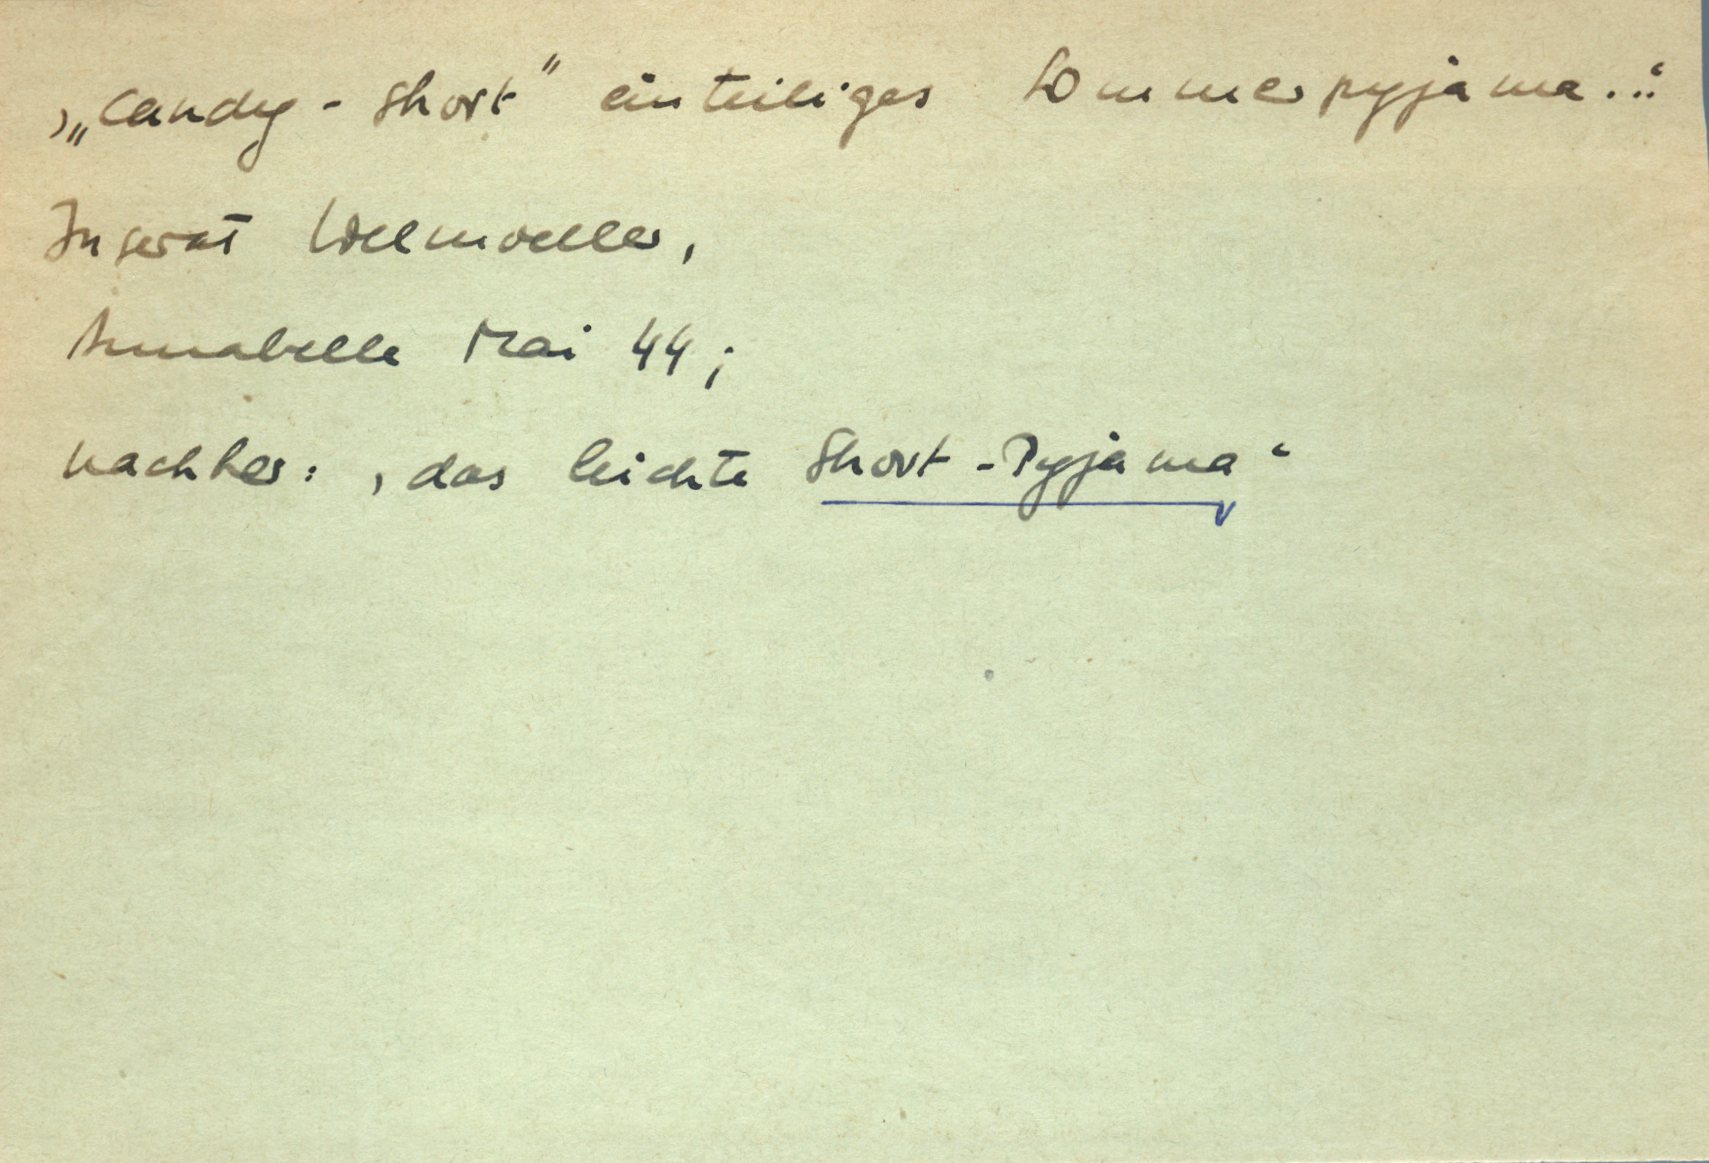 ‚„Candy-Short“ einteiliges Sommerpyjama...‘
Inserat Vollmoeller,
Annabelle Mai 44;
nachher: ‚das leichte Short-Pyjama‘